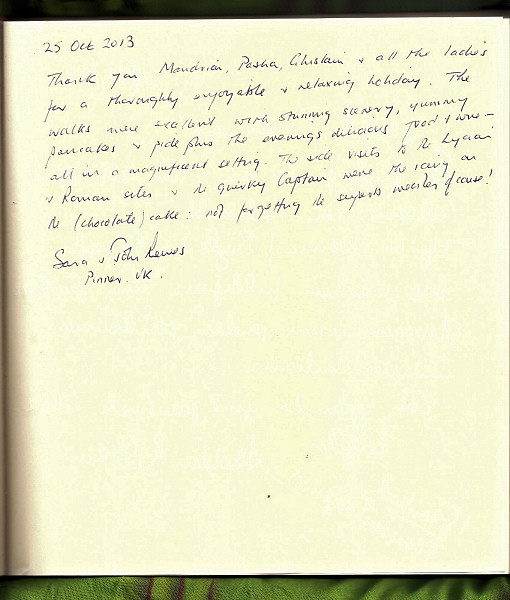 25 Oct 2013
Thank you Mandrian, Pasha, Ghislain & all the ladies
for a thoroughly enjoyable & relaxing holiday. The
walks were excellent with stunning scenery, yummy
pancakes & pide plus the evenings delicious food & wine -
all in a magnificent setting. The side visits to the Lycian
& Roman sites & the quirky Captain were the icing on
the (chocolate) cake : not forgetting the superb weather of course!
Sara & John
Pinner. UK.